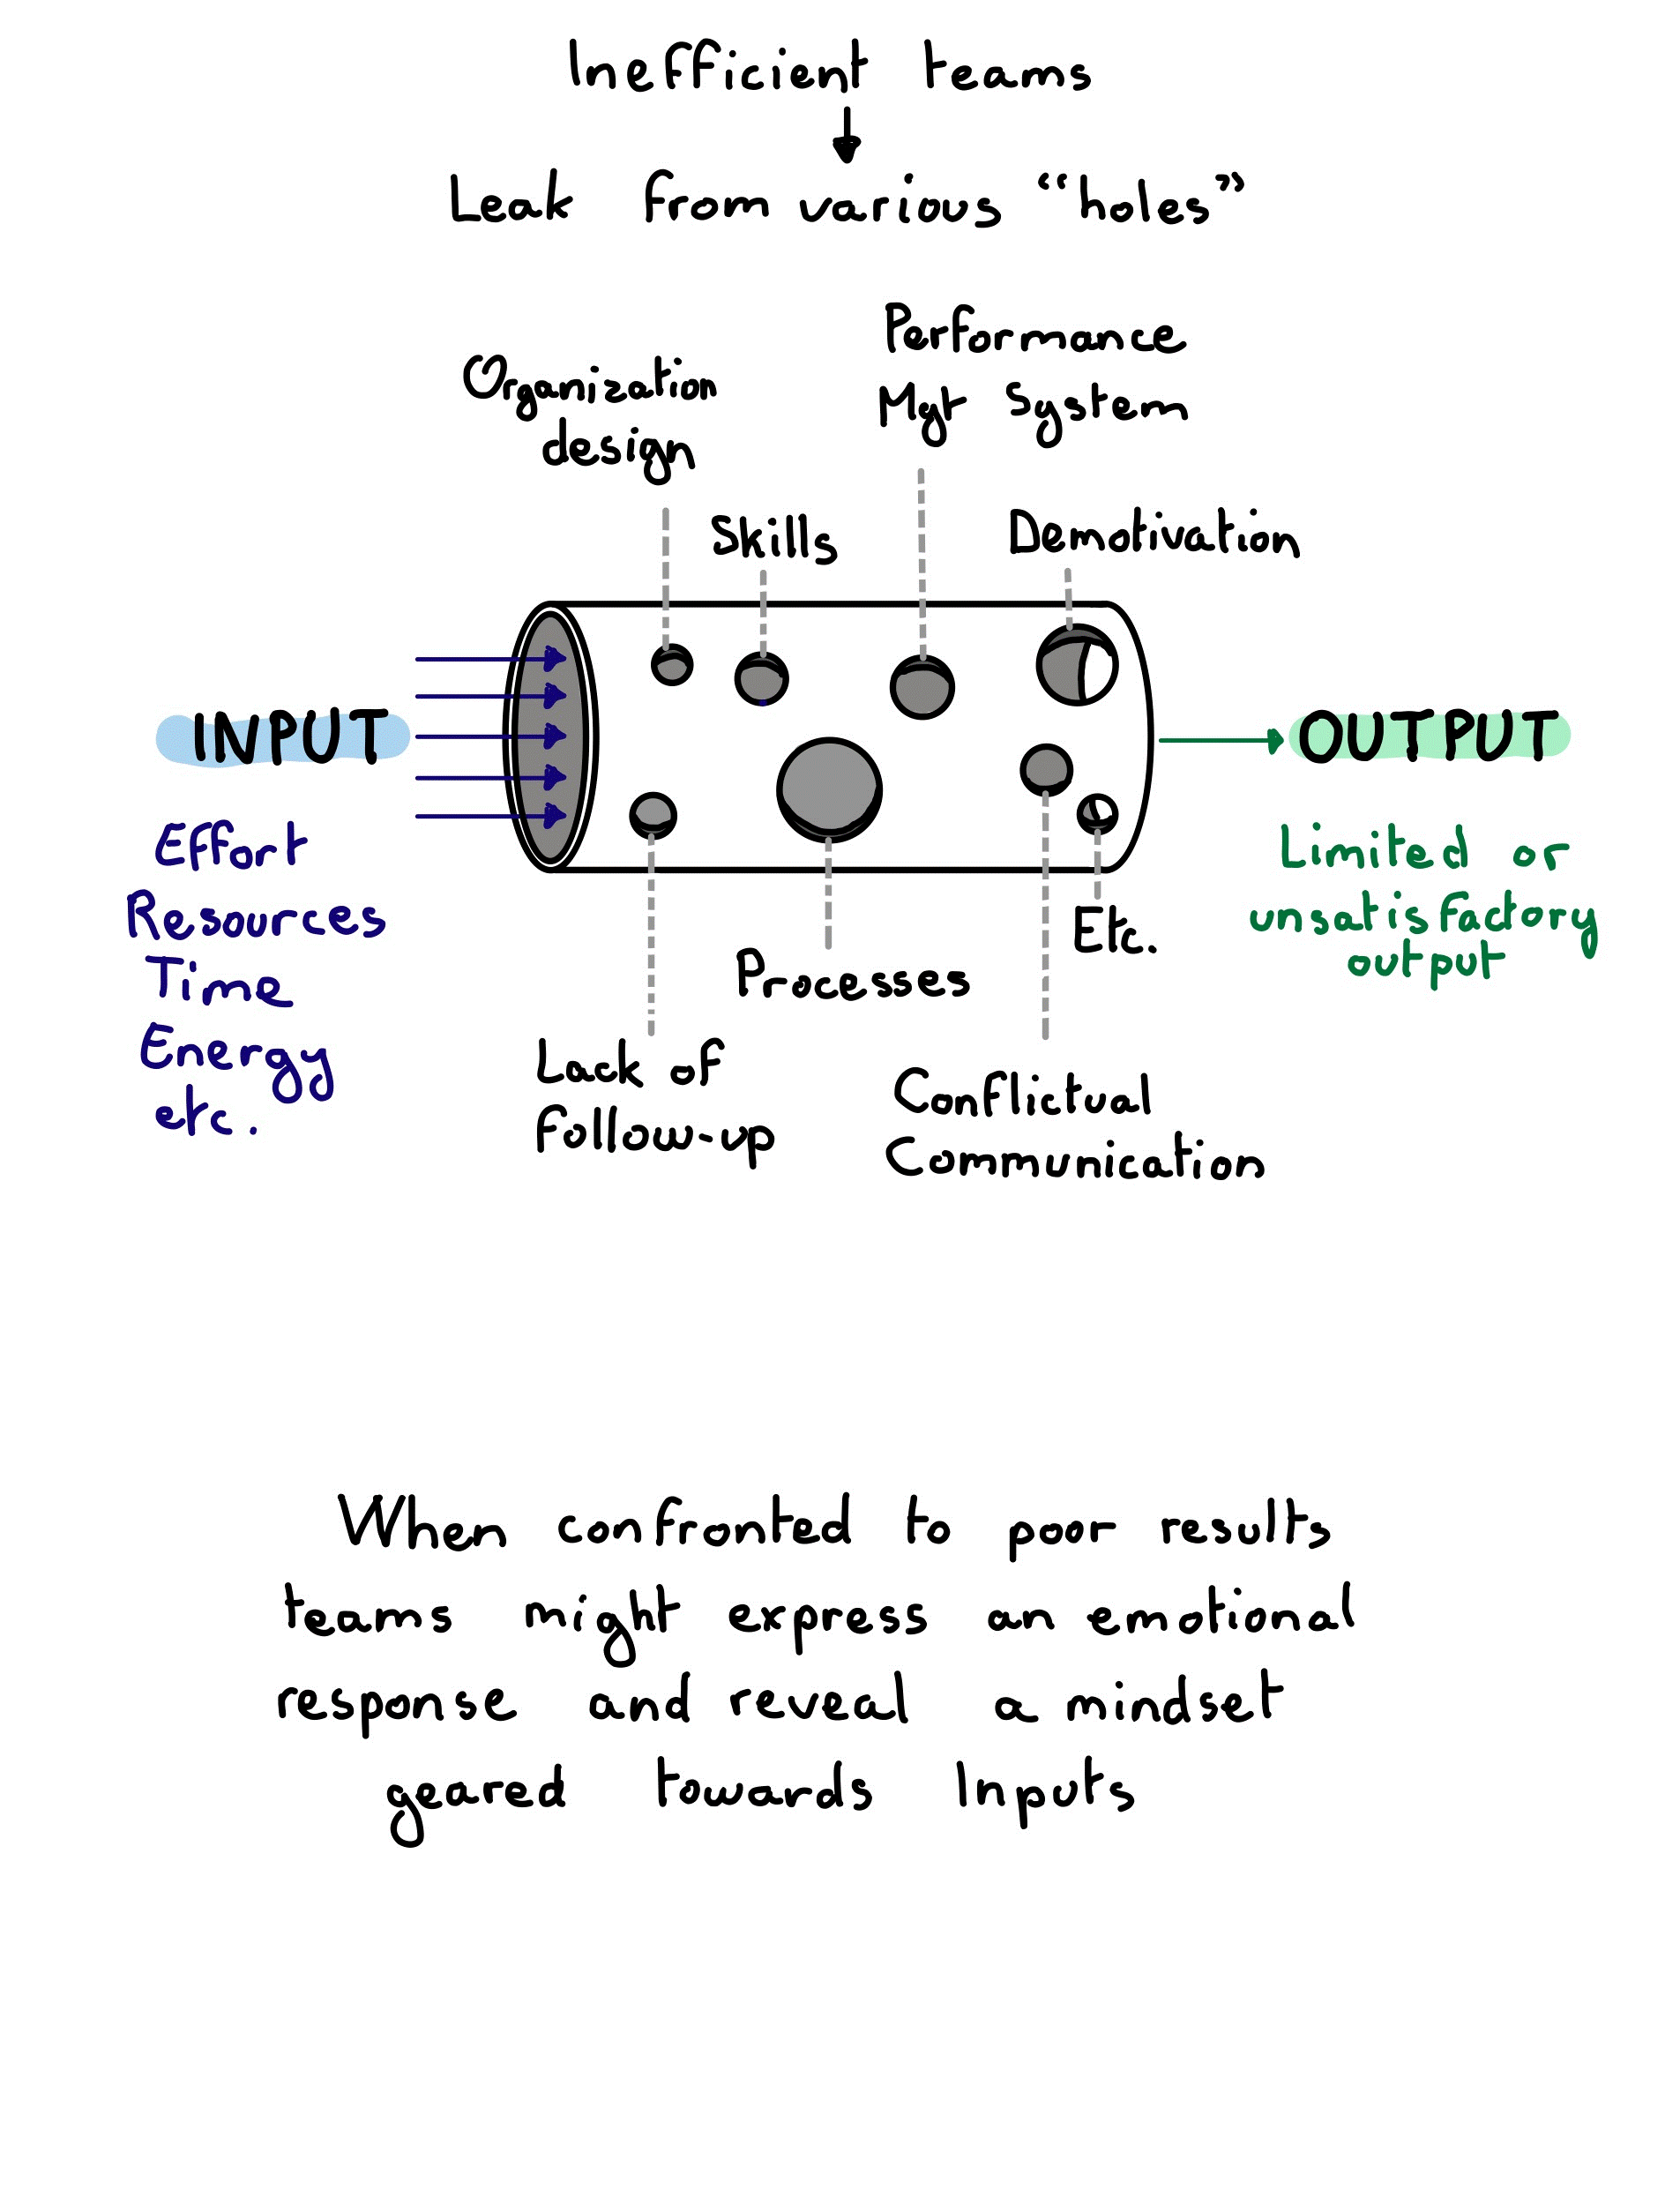 Inefficient teams
Leak from various "holes"
Performance
Mgt System
Organization
design
Skills
Demotivation
INPUT
OUTPUT
Effort
Resources
Time
Energy
etc.
Limited or
unsatisfactory
output
Etc.
Processes
Lack of
Follow-up
Conflictual
Communication
When confronted to poor results
teams might express an emotional
response and reveal a mindset
geared towards Inputs